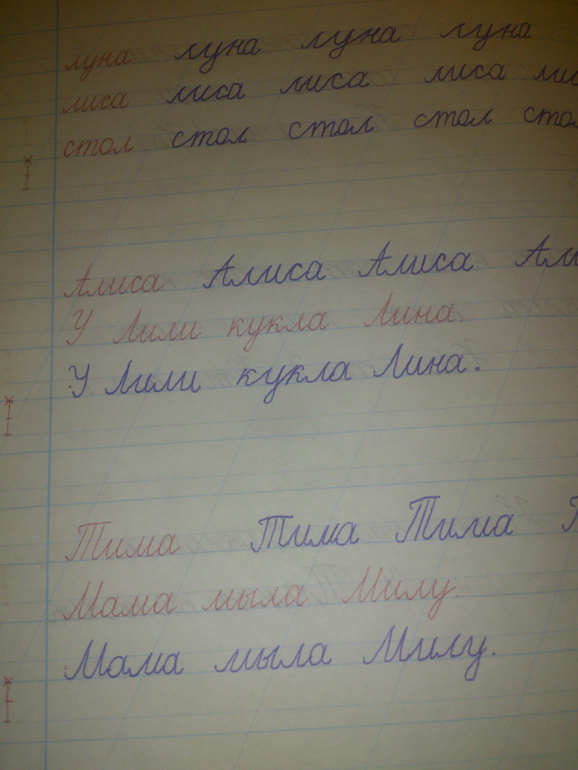 луна луна луна луна
лиса лиса лиса лиса
стол стол стол стол
Алиса Алиса Алиса
У Лили кукла Лина.
У Лили кукла Лина.
Тима Тима Тима
Мама мыла Милу.
Мама мыла Милу.